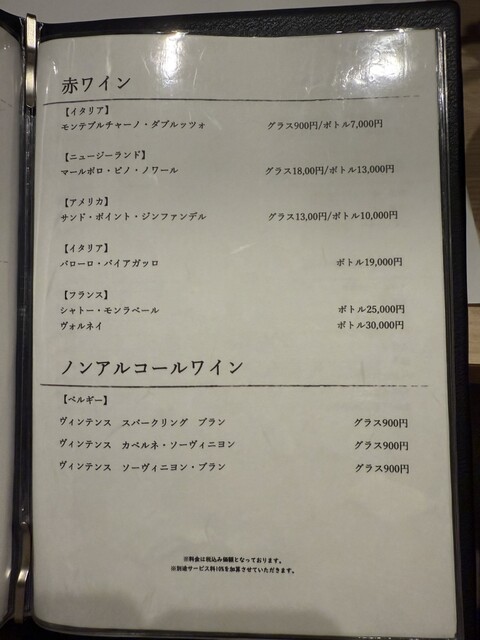 赤ワイン
【イタリア】
モンテプルチャーノ・ダブルッツォ グラス900円/ボトル7,000円
【ニュージーランド】
マールボロ・ピノ・ノワール グラス18,00円/ボトル13,000円
【アメリカ】
サンド・ポイント・ジンファンデル グラス13,00円/ボトル10,000円
【イタリア】
バローロ・パイアガッロ ボトル19,000円
【フランス】
シャトー・モンラベール ボトル25,000円
ヴォルネイ ボトル30,000円
ノンアルコールワイン
【ベルギー】
ヴィンテンス スパークリング ブラン グラス900円
ヴィンテンス カベルネ・ソーヴィニヨン グラス900円
ヴィンテンス ソーヴィニヨン・ブラン グラス900円
※料金は税込み価格となっております。
※別途サービス料10%を加算させていただきます。